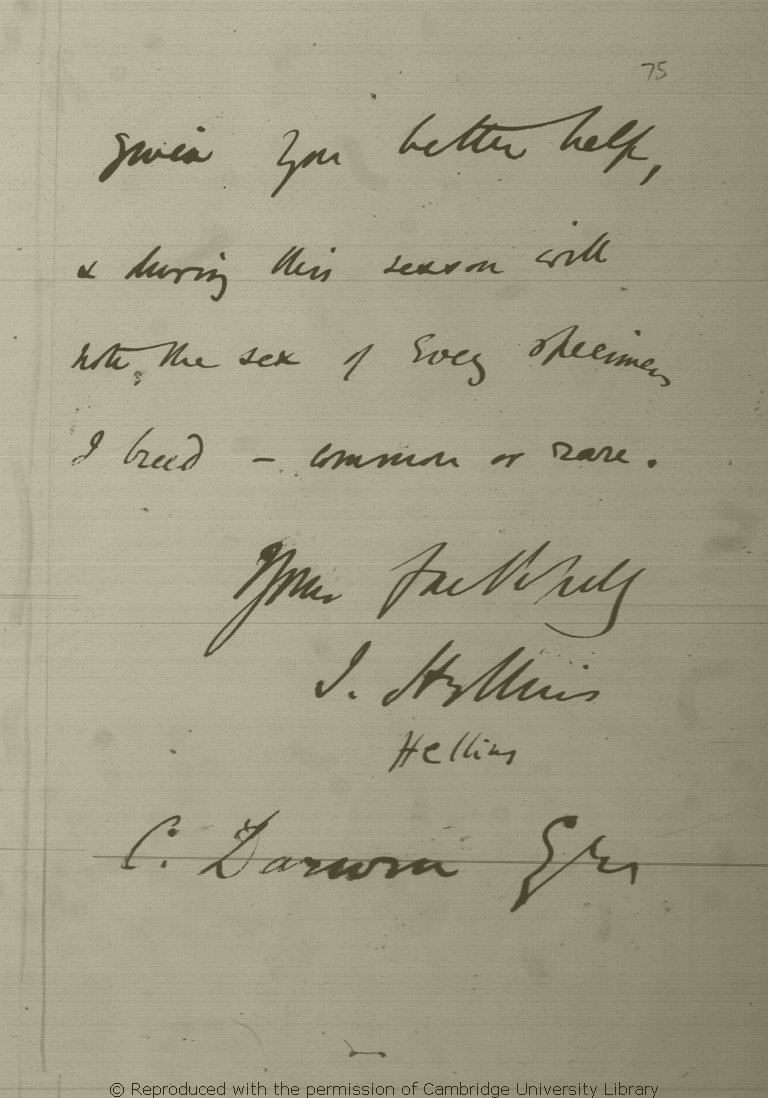 75
given you better help,
& during this season will
note the sex of every specimen
I breed — common or rare.
Yours faithfully
J. Hellins
Hellins
C. Darwin Esq
© Reproduced with the permission of Cambridge University Library